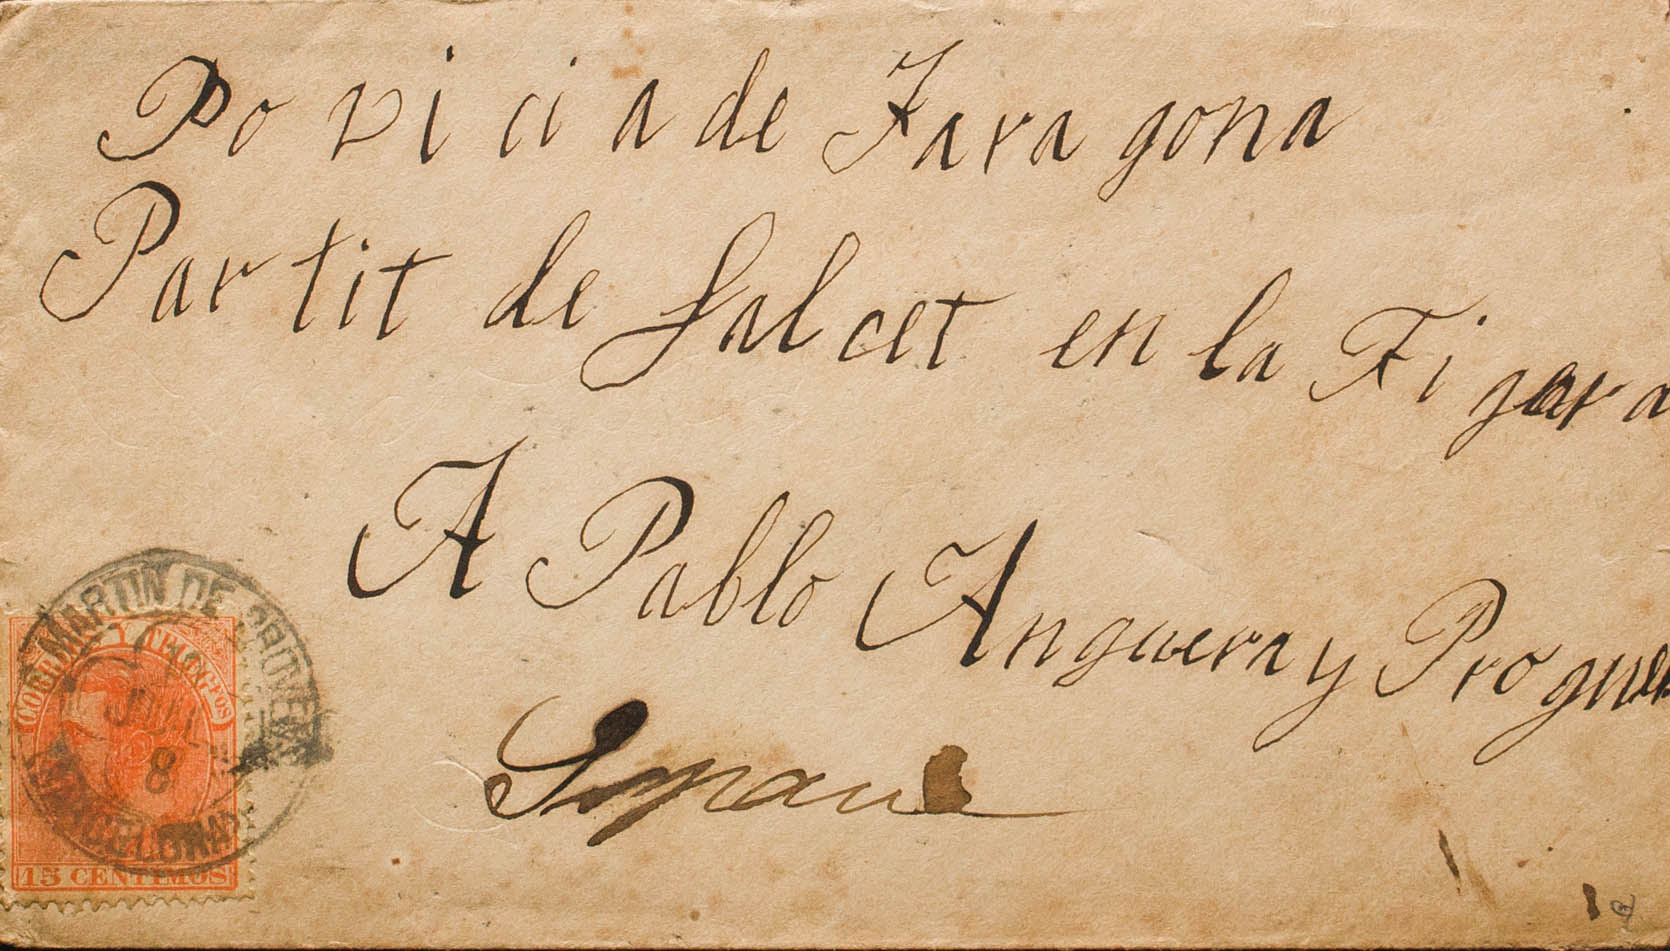 Po vi ci a de Taragona
Partit de Falcet en la Figara
A Pablo Anguera y Pro guer
MARTIN DE PROVEN
JUL
8
BARCELONA
CORREOS Y TELEGFOS
15 CENTIMOS